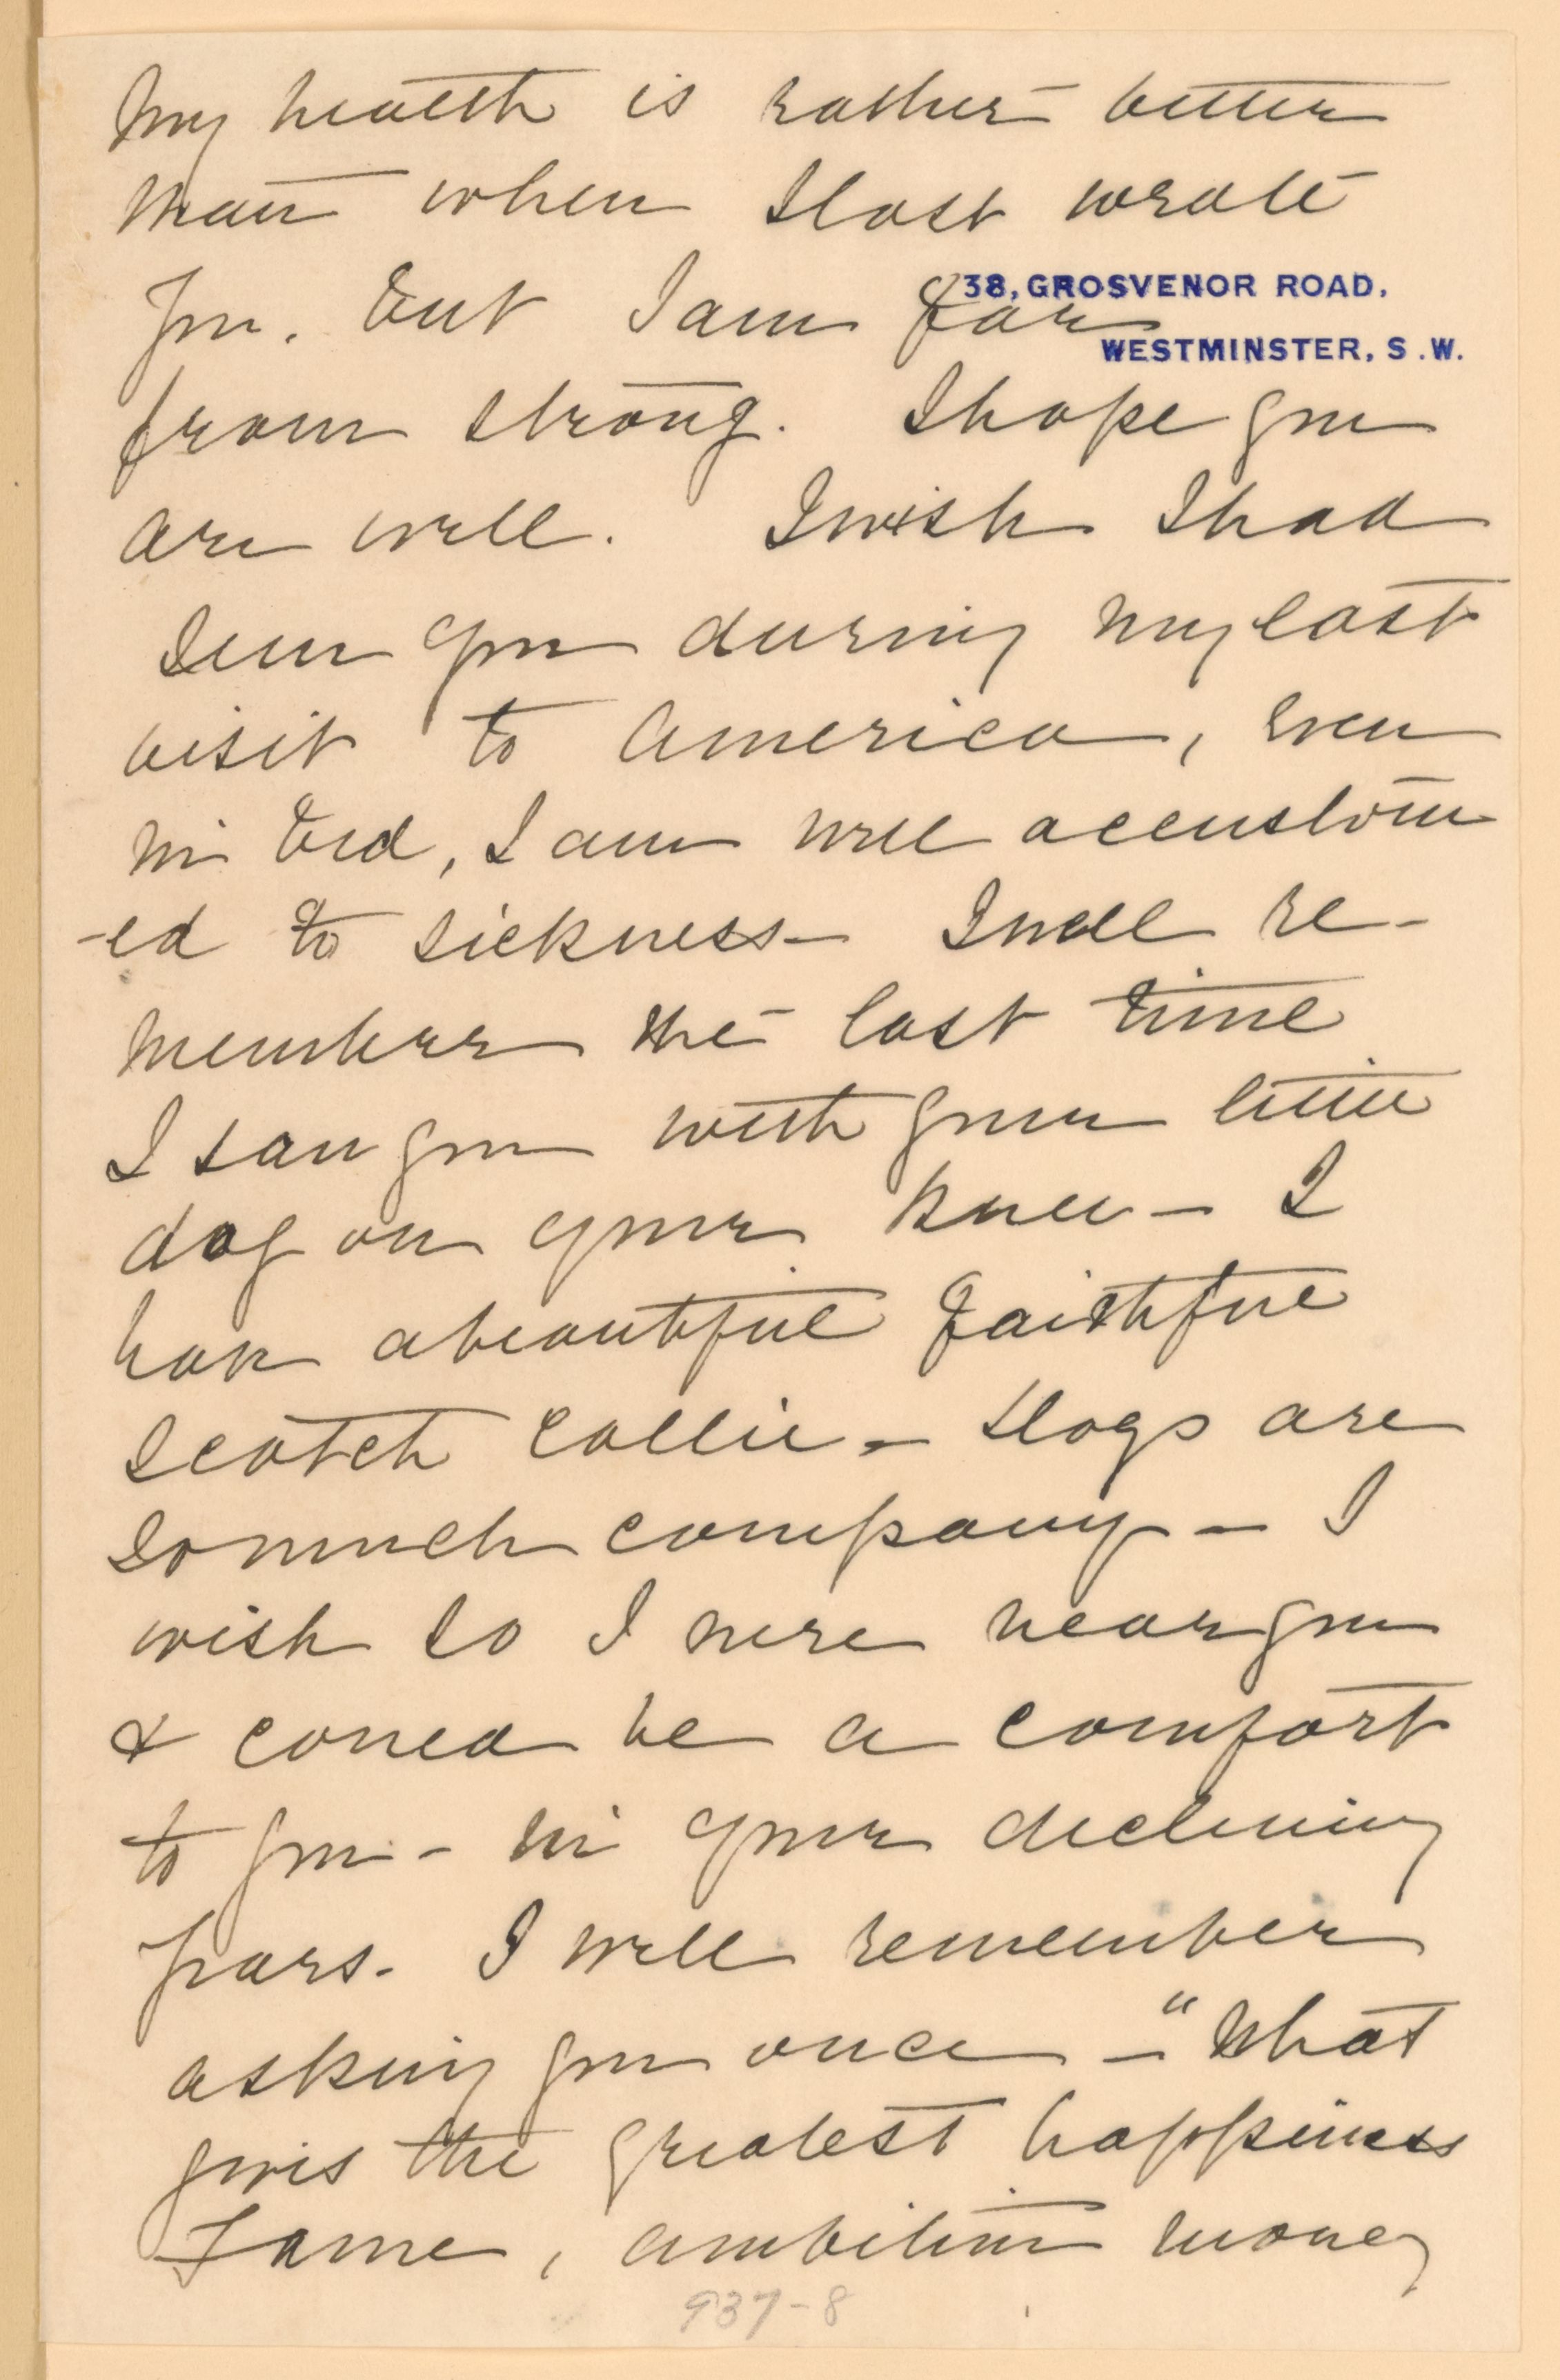 My health is rather better
than when I last wrote
you. but I am far
38, GROSVENOR ROAD,
WESTMINSTER, S.W.
from strong. I hope you
are well. I wish I had
seen you during my last
visit to America, even
in bed, I am well accustom
-ed to sickness — I well re-
member the last time
I saw you with your little
dog on your knee — I
have a beautiful faithful
Scotch Collie — Dogs are
so much company — I
wish so I were near you
& could be a comfort
to you - in your declining
years. I well remember
asking you once — "What
gives the greatest happiness
Fame, ambition money
937-8